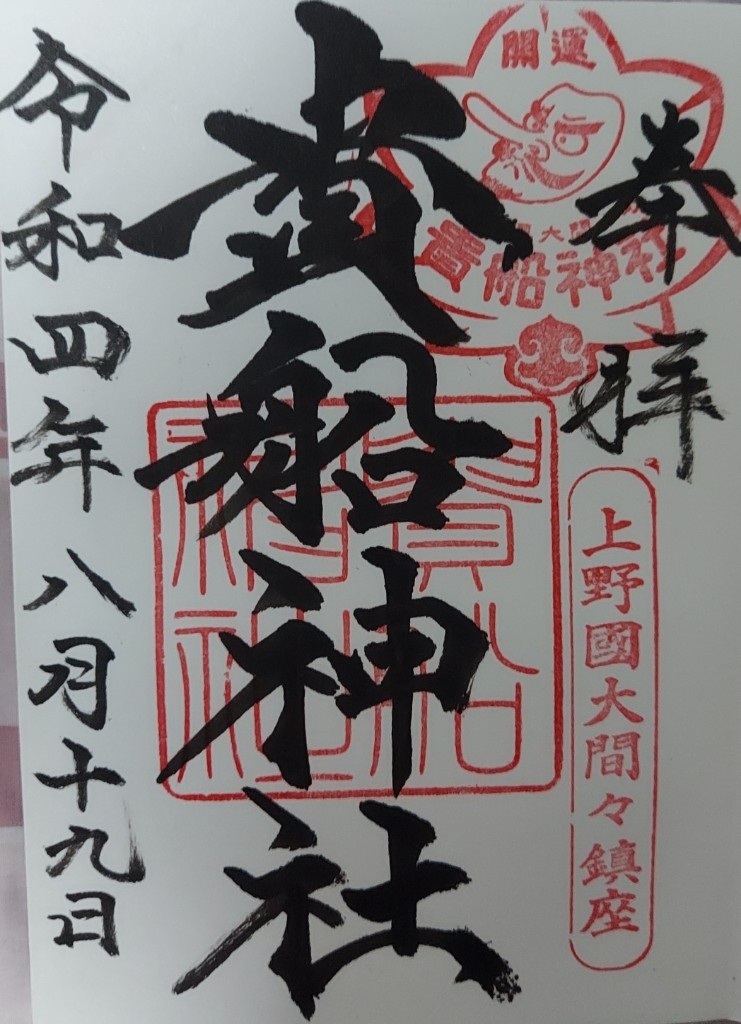 奉拝
開運
大間
貴船神社
上野國大間々鎮座
貴船神社
貴船神社
令和四年八月十九日